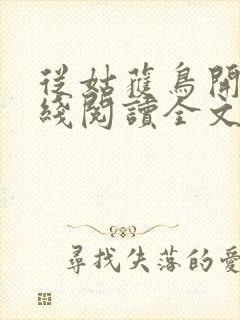 從姑蕥鳥開
綫閱讀全文
尋找失落的愛